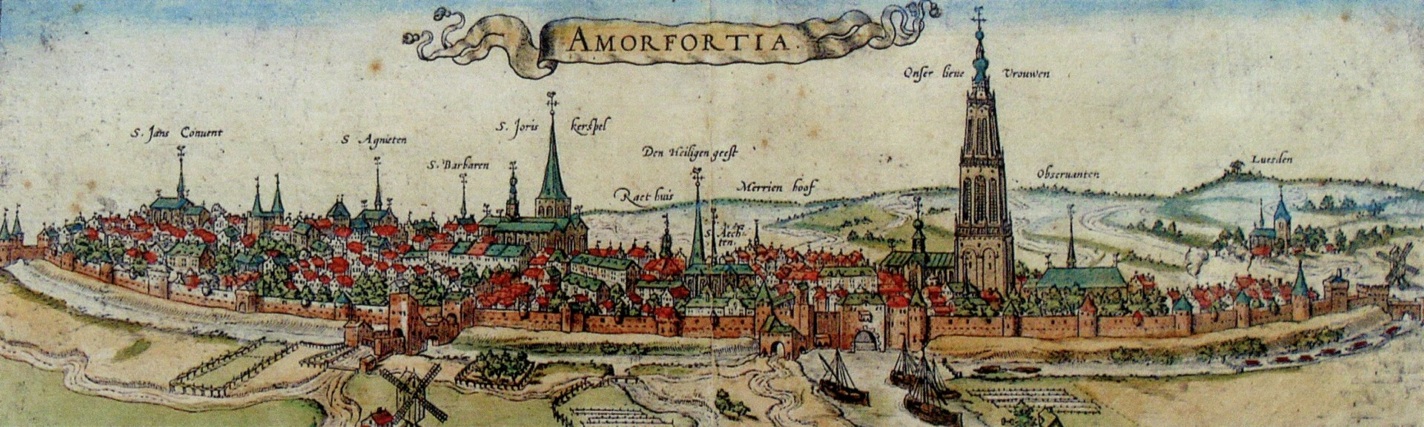 AMORFORTIA.
Onser lieue Vrouwen
S. Jans Conuent
S Agnieten
S. Barbaren
S. Joris kerspel
Den Heiligen geest
Raet huis
Merrien hoof
Obseruanten
Luesden